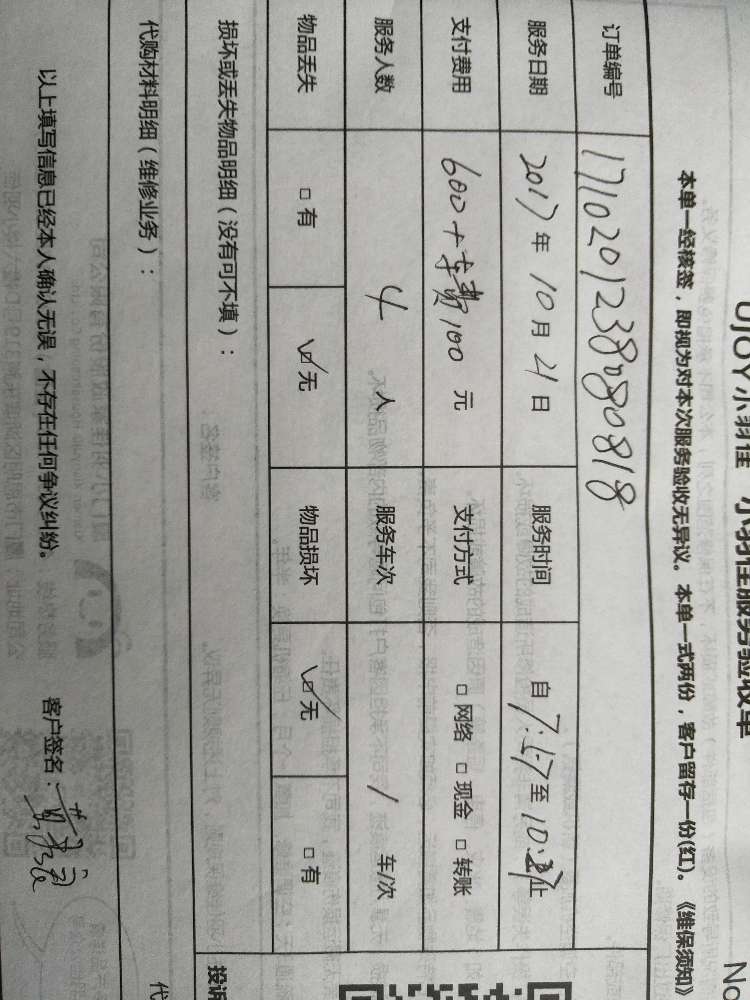 UJOY小羽佳 小羽佳服务验收单
No
本单一经核签，即视为对本次服务验收无异议。本单一式两份，客户留存一份(红)。《维保须知》
订单编号
服务日期 2017年 10月 21日 服务时间 自 7:47 至 止
支付费用 600+车费100 元 支付方式 □网络 □现金 □转账
服务人数 4 人 服务车次 / 车/次
物品丢失 □有 ☑无 物品损坏 ☑无 □有
损坏或丢失物品明细（没有可不填）：
投诉
代购材料明细（维修业务）：
代
以上填写信息已经本人确认无误，不存在任何争议纠纷。 客户签名：